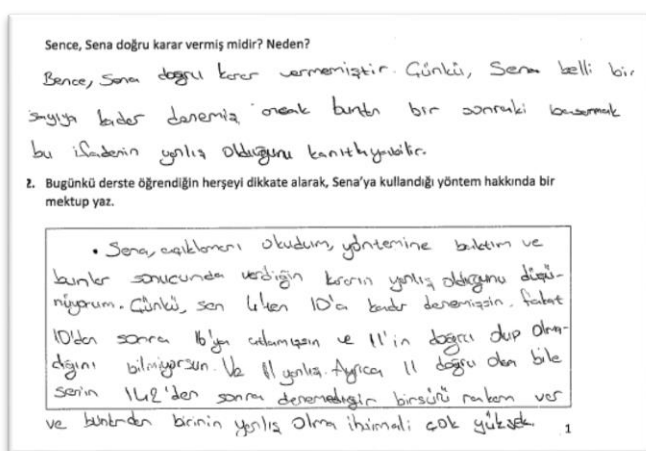 Sence, Sena doğru karar vermiş midir? Neden?
Bence, Sena doğru karar vermemiştir. Günkü, Sena belli bir
sayıya kadar denemiş ancak bundan bir sonraki basamak
bu ifadenin yanlış olduğunu kanıtlayabilir.
2. Bugünkü derste öğrendiğin herşeyi dikkate alarak, Sena'ya kullandığı yöntem hakkında bir
mektup yaz.
• Sena, açıklamanı okudum, yöntemine baktım ve
bunlar sonucunda verdiğin kararın yanlış olduğunu düşü-
nüyorum. Günkü, sen 4'ten 10'a kadar denemişsin. fakat
10'dan sonra 16'ya atlamışsın ve 11'in doğru olup olma-
dığını bilmiyorsun. Ve 11 yanlış. Ayrıca 11 doğru olsa bile
senin 142'den sonra denemediğin birsürü rakam var
ve bunlardan birinin yanlış olma ihtimali çok yüksek
1